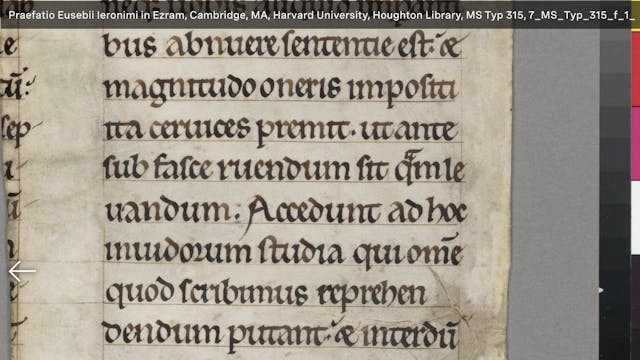 Praefatio Eusebii Ieronimi in Ezram, Cambridge, MA, Harvard University, Houghton Library, MS Typ 315, 7_MS_Typ_315_f_1_
e bus abnuere sententie est: &
tū: magnitudo oneris impositi
sep ita ceruices premit. ut ante
sub fasce ruendum sit q̄m le
ū uandum: Accedunt ad hoc
inuidorum studia qui om̄e
e quod scribimus reprehen
dendum putant: & interdū